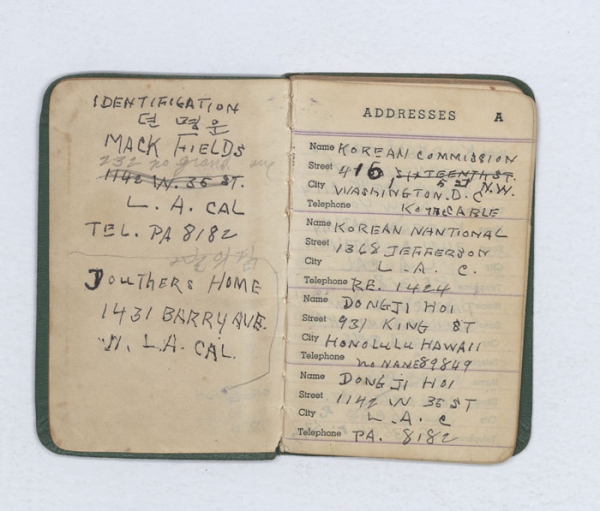 IDENTIFICATION
뎐 명 운
MACK FIELDS
232 no grand
1142 W. 35 ST.
L. A. CAL
TEL. PA 8182
DOUTHERS HOME
1431 BARRY AVE.
W. L.A. CAL.
ADDRESSES A
Name KOREAN COMMISSION
Street 416 SIXTEENTH ST. N.W.
City WASHINGTON. D. C
Telephone CABLE
Name KOREAN NANTIONAL
Street 1368 JEFFERSON
City L. A. C.
Telephone RE. 1424
Name DONGJI HOI
Street 931 KING ST
City HONOLULU HAWAII
Telephone 89849
Name DONGJI HOI
Street 1142 W 35 ST
City L. A. C
Telephone PA. 8182